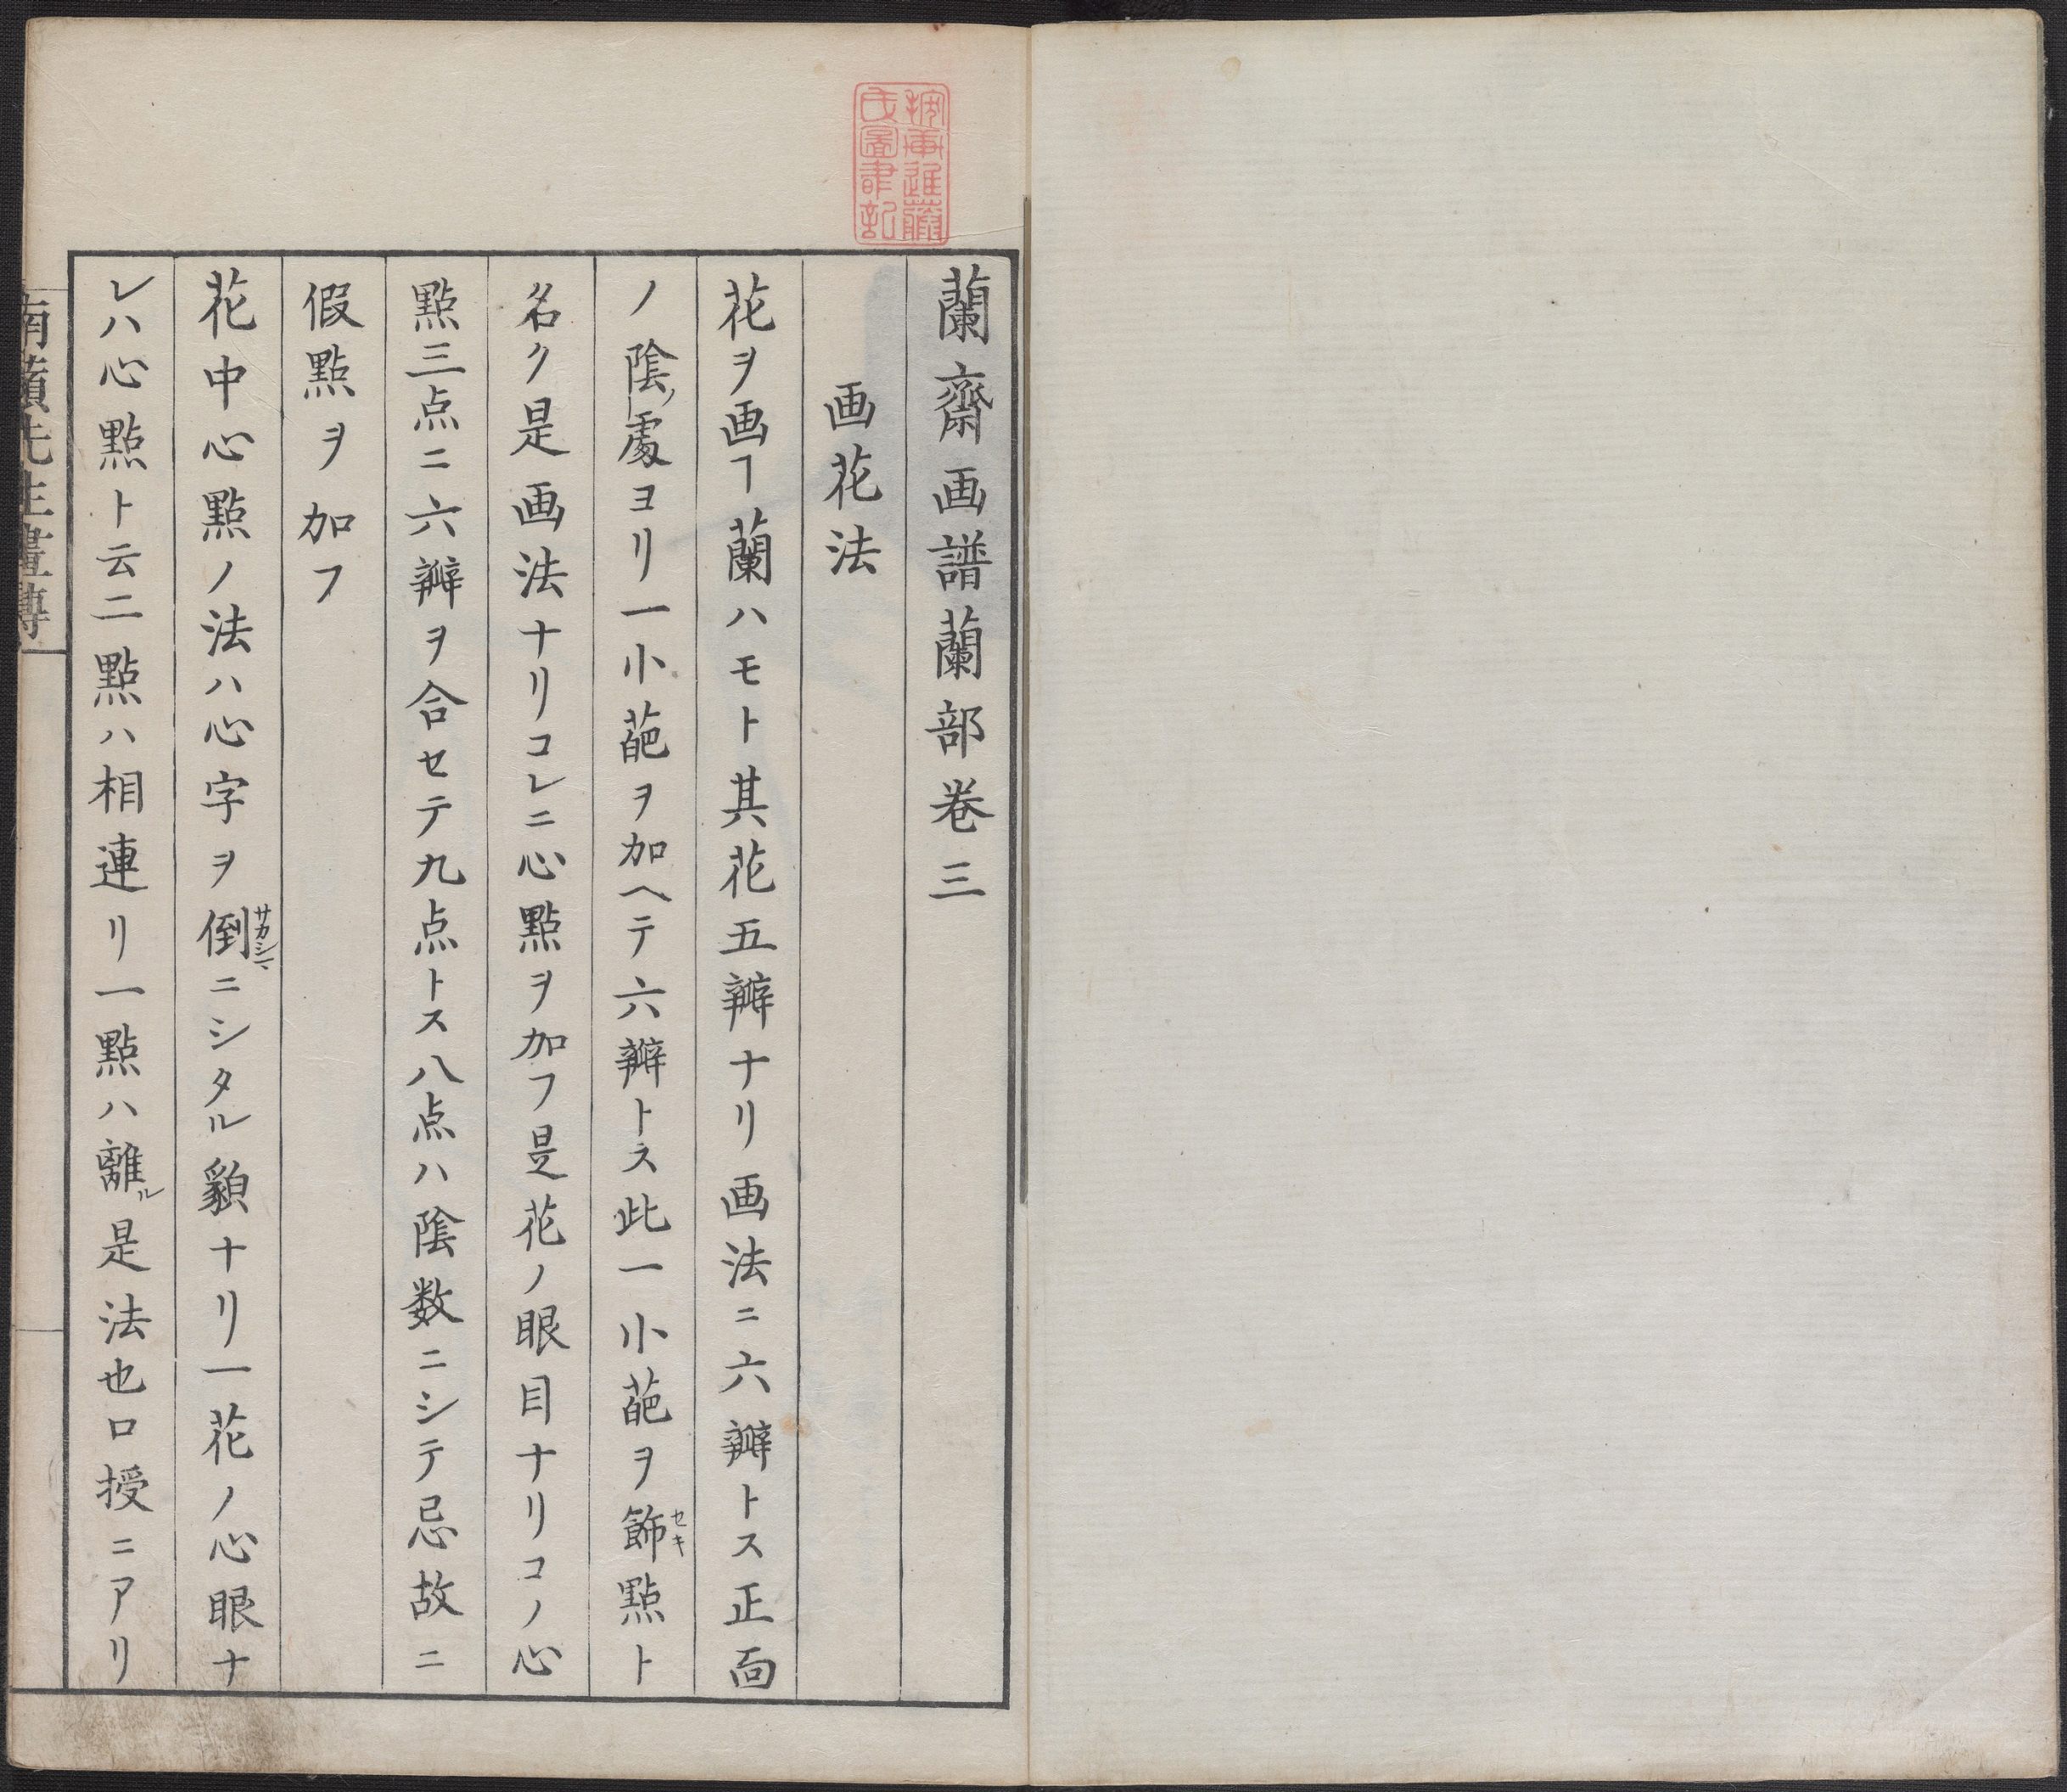 蘭齋画譜蘭部卷三
画花法
花ヲ画ヿ蘭ハモト其花五瓣ナリ画法ニ六瓣トス正面
ノ陰ノ處ヨリ一小葩ヲ加ヘテ六瓣トス此一小葩ヲ飾セキ點ト
名ク是画法ナリコレニ心點ヲ加フ是花ノ眼目ナリコノ心
點三点ニ六瓣ヲ合セテ九点トス八点ハ陰数ニシテ忌故ニ
假點ヲ加フ
花中心點ノ法ハ心字ヲ倒サカシマニシタル貌ナリ一花ノ心眼ナ
レハ心點ト云二點ハ相連リ一點ハ離ル是法也口授ニアリ
先生畫傳